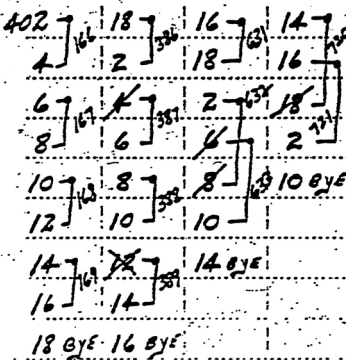 402 18 16 14
4 166 2 386 18 631 16
6 4 387 2 632 18
8 167 6 6 2 721
10 8 8 10 BYE
12 168 10 388 10
14 12 14 BYE
16 169 14 389
18 BYE 16 BYE